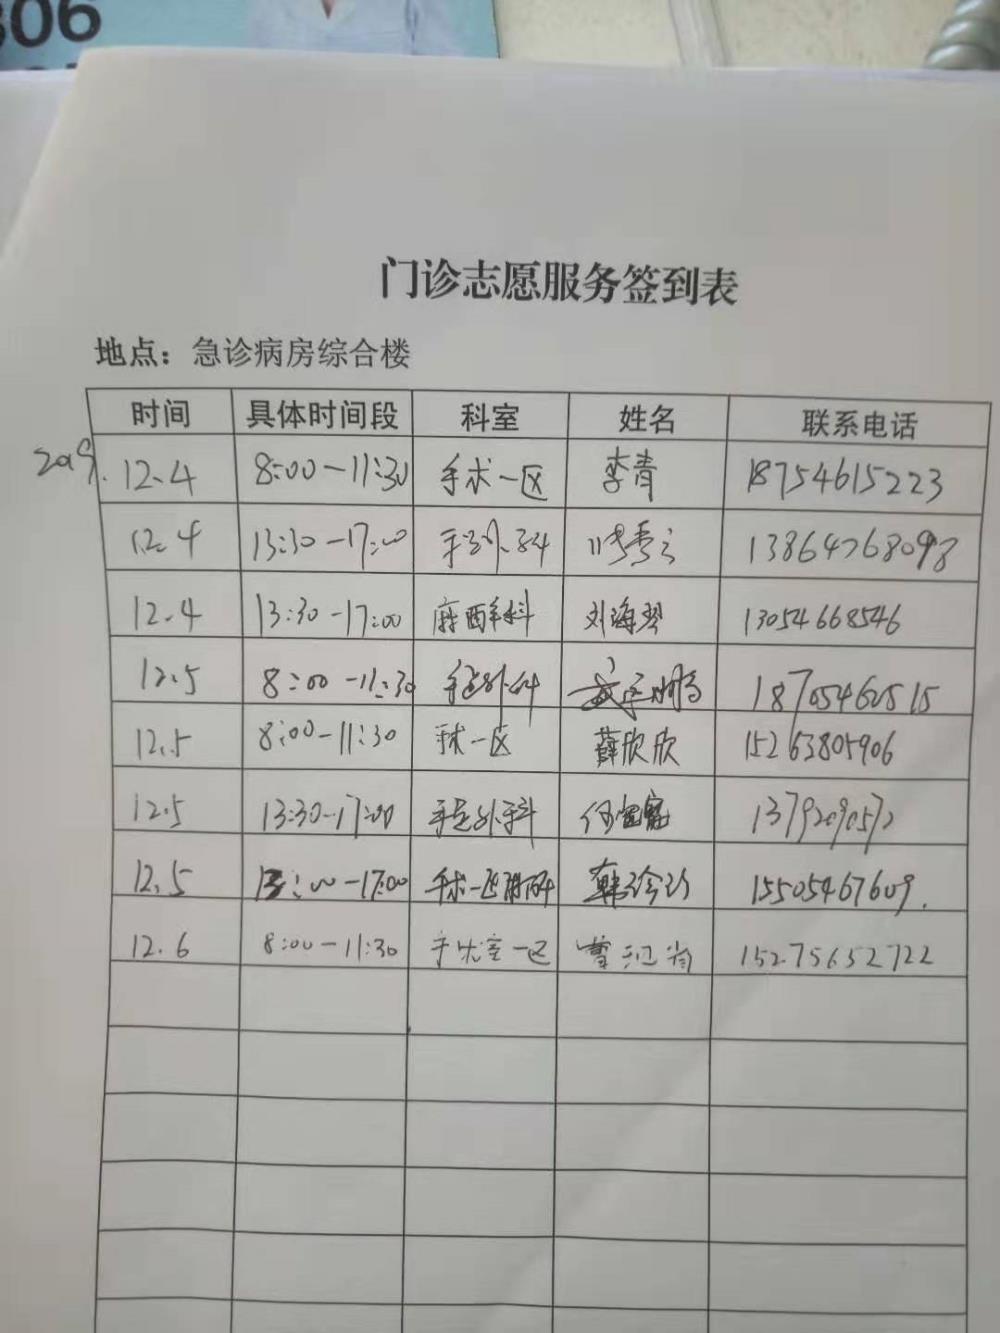 306
门诊志愿服务签到表
地点：急诊病房综合楼
时间 具体时间段 科室 姓名 联系电话
2019. 12.4 8:00-11:30 手术一区 李青 18754615223
12.4 13:30-17:00 手外科 13864768098
12.4 13:30-17:00 麻醉科 刘海琴 13054668546
12.5 8:00-11:30 手足外科 18705460515
12.5 8:00-11:30 手术一区 薛欣欣 15263805906
12.5 13:30-17:00 手足外科
12.5 13:00-17:00 手术一区 韩 15505467609.
12.6 8:00-11:30 手术室一区 曹 15275652722